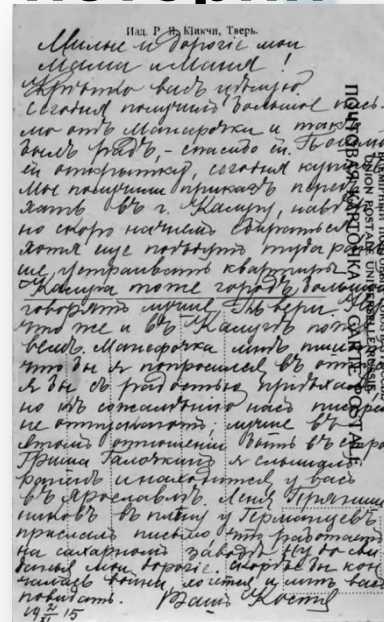 Изд. Р. Я. Кикчи, Тверь.
Милые и дорогіе мои
мама и Маня!
Крѣпко васъ цѣлую.
Сегодня получилъ большое пись-
мо отъ Манефочки и такъ
былъ радъ, - спасибо ей.
ей открытку, сегодня
Мы получили приказъ перее-
хать въ г. Калугу,
но скоро начнемъ собираться
хотя еще туда
ше, устраивать квартиры
Калуга тоже городъ большой
говорятъ лучше Твери.
что же и въ Калугѣ
Манефочка мнѣ
что бы я попросился въ
я бы съ радостью пріѣхалъ
но къ сожалѣнію насъ
не отпускаютъ; лучше въ
этомъ отношеніи быть въ
Гриша Галочкинъ я слышалъ
раненъ и находится у васъ
въ Ярославлѣ. Леня Пряниш
никовъ въ плѣну у Германцевъ
прислалъ письмо что работаетъ
на сахарномъ заводѣ. Ну до сви
данья мои дорогіе. скорѣе бы кон
чилась война, хочется и мнѣ васъ
повидать. Вашъ Костя
19 2/XI 15
ПОЧТОВАЯ КАРТОЧКА. CARTE POSTALE
UNION POSTALE UNIVERSELLE RUSSIE